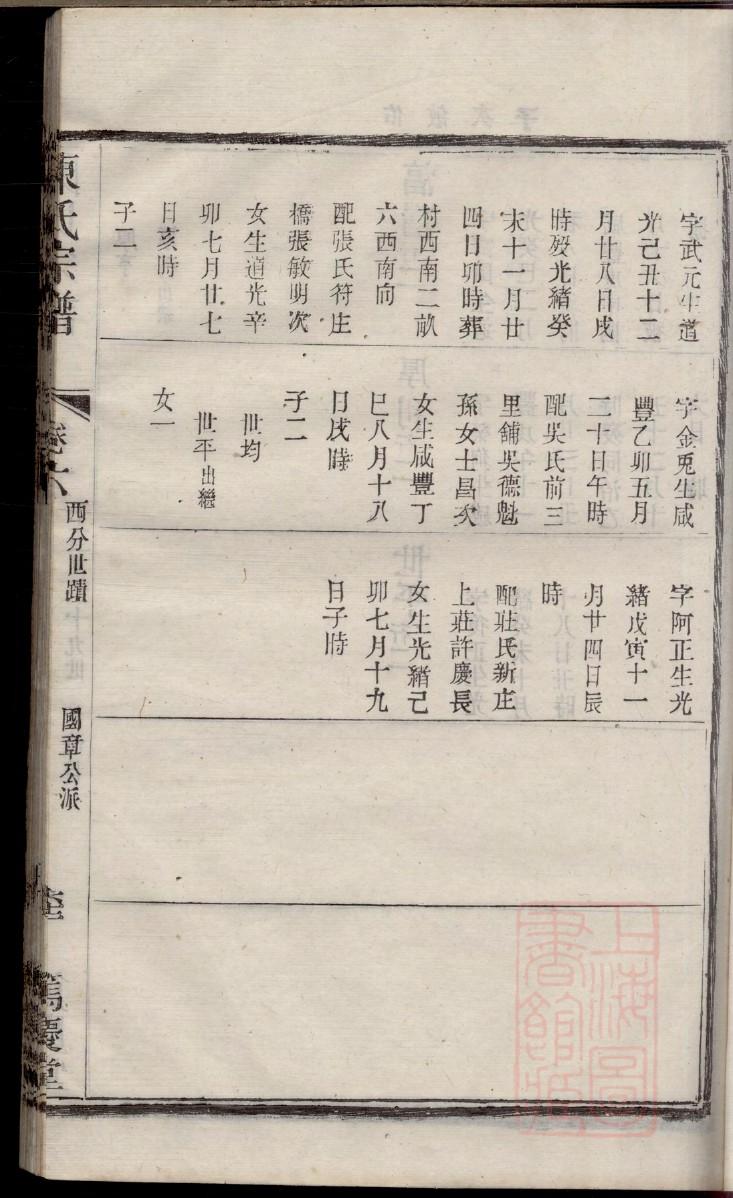 字武元生道
光己丑十二
月廿八日戌
時歿光緒癸
未十一月廿
四日卯時葬
村西南二畝
六西南向
配張氏符庄
橋張敏明次
女生道光辛
卯七月廿七
日亥時
子二
字金兎生咸
豐乙卯五月
二十日午時
配吳氏前三
里舖吳德魁
孫女士昌次
女生咸豐丁
巳八月十八
日戌時
子二
世均
世平出繼
女一
字阿正生光
緒戊寅十一
月廿四日辰
時
配莊氏新庄
上莊許慶長
女生光緒己
卯七月十九
日子時
陳氏宗譜
卷六
西分世蹟十九世
國章公派
篤慶堂
上海圖書館藏